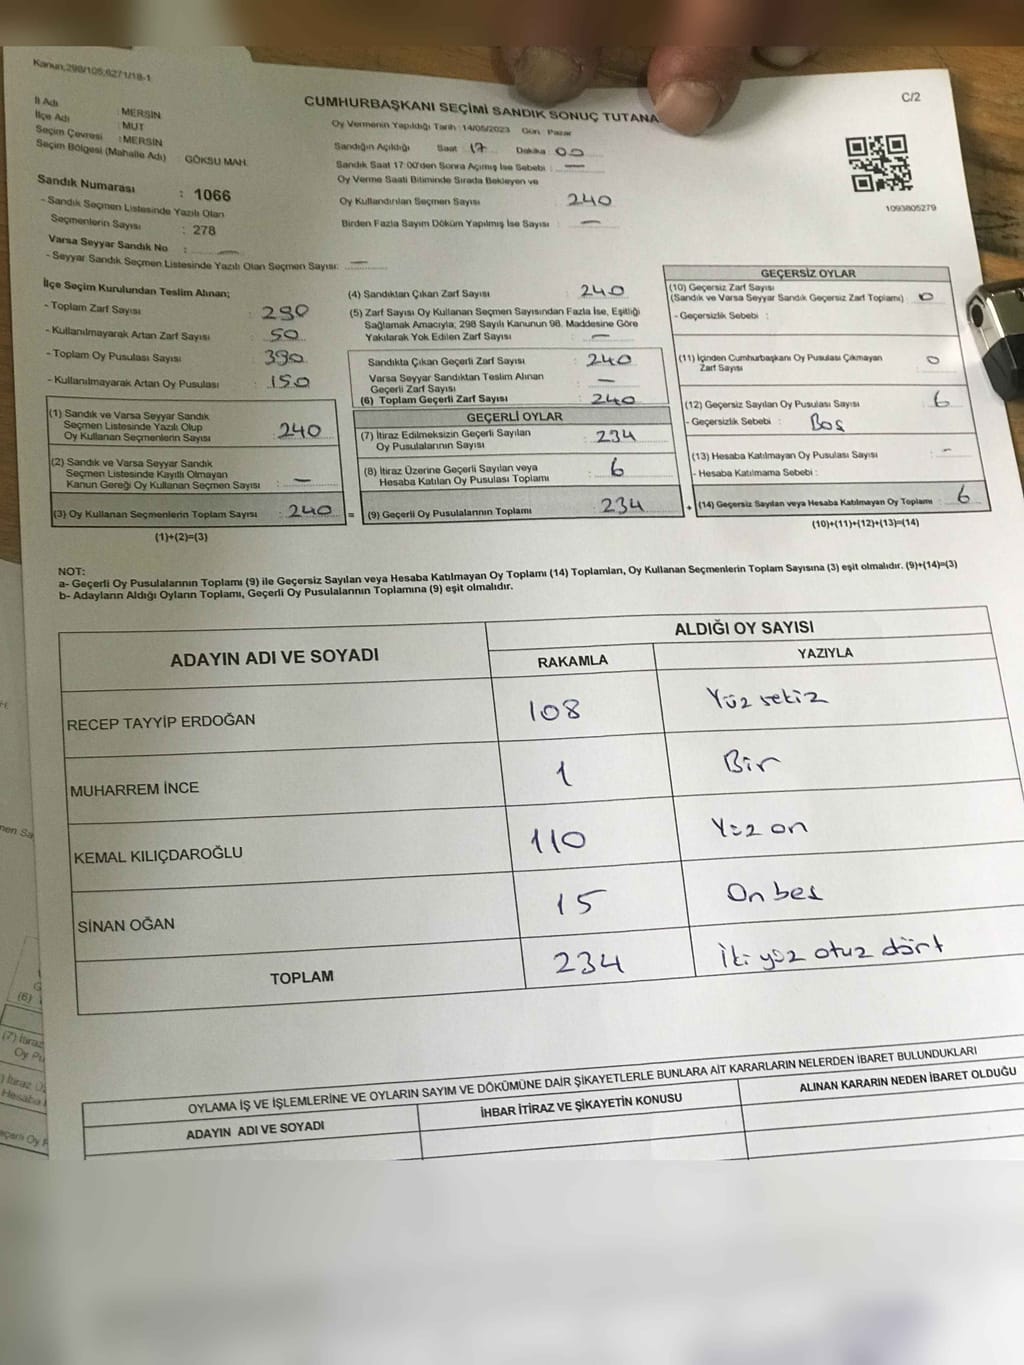 Kanun;298/105;6271/18-1
C/2
İl Adı : MERSİN
İlçe Adı : MUT
Seçim Çevresi : MERSİN
Seçim Bölgesi (Mahalle Adı) GÖKSU MAH.
CUMHURBAŞKANI SEÇİMİ SANDIK SONUÇ TUTANA
Oy Vermenin Yapıldığı Tarih : 14/05/2023 Gün : Pazar
Sandığın Açıldığı Saat : 17 Dakika : 00
Sandık Saat 17:00'den Sonra Açımış İse Sebebi : —
Oy Verme Saati Bitiminde Sırada Bekleyen ve
Oy Kullandırılan Seçmen Sayısı : 240
Birden Fazla Sayım Döküm Yapılmış İse Sayısı : —
1093805279
Sandık Numarası : 1066
- Sandık Seçmen Listesinde Yazılı Olan
Seçmenlerin Sayısı : 278
Varsa Seyyar Sandık No : —
- Seyyar Sandık Seçmen Listesinde Yazılı Olan Seçmen Sayısı: —
İlçe Seçim Kurulundan Teslim Alınan;
- Toplam Zarf Sayısı : 290
- Kullanılmayarak Artan Zarf Sayısı : 50
- Toplam Oy Pusulası Sayısı : 390
- Kullanılmayarak Artan Oy Pusulası : 150
(1) Sandık ve Varsa Seyyar Sandık
Seçmen Listesinde Yazılı Olup
Oy Kullanan Seçmenlerin Sayısı : 240
(2) Sandık ve Varsa Seyyar Sandık
Seçmen Listesinde Kayıtlı Olmayan
Kanun Gereği Oy Kullanan Seçmen Sayısı : —
(3) Oy Kullanan Seçmenlerin Toplam Sayısı : 240 =
(1)+(2)=(3)
(4) Sandıktan Çıkan Zarf Sayısı : 240
(5) Zarf Sayısı Oy Kullanan Seçmen Sayısından Fazla İse, Eşitliği
Sağlamak Amacıyla; 298 Sayılı Kanunun 98. Maddesine Göre
Yakılarak Yok Edilen Zarf Sayısı : —
Sandıkta Çıkan Geçerli Zarf Sayısı : 240
Varsa Seyyar Sandıktan Teslim Alınan
Geçerli Zarf Sayısı : —
(6) Toplam Geçerli Zarf Sayısı : 240
GEÇERLİ OYLAR
(7) İtiraz Edilmeksizin Geçerli Sayılan
Oy Pusulalarının Sayısı : 234
(8) İtiraz Üzerine Geçerli Sayılan veya
Hesaba Katılan Oy Pusulası Toplamı : 6
(9) Geçerli Oy Pusulalarının Toplamı : 234 +
GEÇERSİZ OYLAR
(10) Geçersiz Zarf Sayısı
(Sandık ve Varsa Seyyar Sandık Geçersiz Zarf Toplamı) : 0
- Geçersizlik Sebebi :
(11) İçinden Cumhurbaşkanı Oy Pusulası Çıkmayan
Zarf Sayısı : 0
(12) Geçersiz Sayılan Oy Pusulası Sayısı : 6
- Geçersizlik Sebebi : Boş
(13) Hesaba Katılmayan Oy Pusulası Sayısı : -
- Hesaba Katılmama Sebebi :
(14) Geçersiz Sayılan veya Hesaba Katılmayan Oy Toplamı : 6
(10)+(11)+(12)+(13)=(14)
NOT:
a- Geçerli Oy Pusulalarının Toplamı (9) ile Geçersiz Sayılan veya Hesaba Katılmayan Oy Toplamı (14) Toplamları, Oy Kullanan Seçmenlerin Toplam Sayısına (3) eşit olmalıdır. (9)+(14)=(3)
b- Adayların Aldığı Oyların Toplamı, Geçerli Oy Pusulalarının Toplamına (9) eşit olmalıdır.
ADAYIN ADI VE SOYADI
ALDIĞI OY SAYISI
RAKAMLA YAZIYLA
RECEP TAYYİP ERDOĞAN 108 Yüz sekiz
MUHARREM İNCE 1 Bir
KEMAL KILIÇDAROĞLU 110 Yüz on
SİNAN OĞAN 15 On beş
TOPLAM 234 İki yüz otuz dört
OYLAMA İŞ VE İŞLEMLERİNE VE OYLARIN SAYIM VE DÖKÜMÜNE DAİR ŞİKAYETLERLE BUNLARA AİT KARARLARIN NELERDEN İBARET BULUNDUKLARI
ADAYIN ADI VE SOYADI İHBAR İTİRAZ VE ŞİKAYETİN KONUSU ALINAN KARARIN NEDEN İBARET OLDUĞU